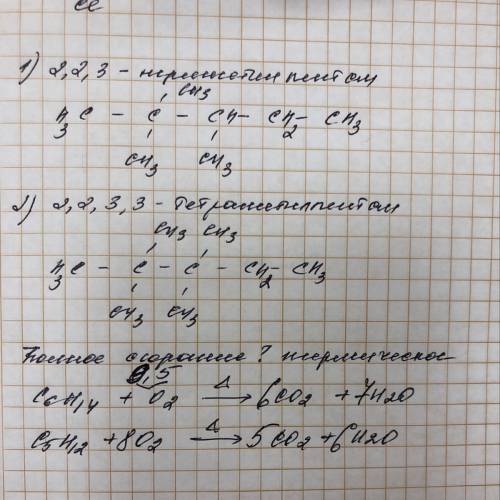 се
1) 2,2,3 - триметилпентан
CH3
H3C - C - CH - CH2 - CH3
CH3 CH3
2) 2,2,3,3 - тетраметилпентан
CH3 CH3
H3C - C - C - CH2 - CH3
CH3 CH3
Полное сгорание? термическое
C6H14 + 9,5 O2 →Δ 6CO2 + 7H2O
C5H12 + 8O2 →Δ 5CO2 + 6H2O